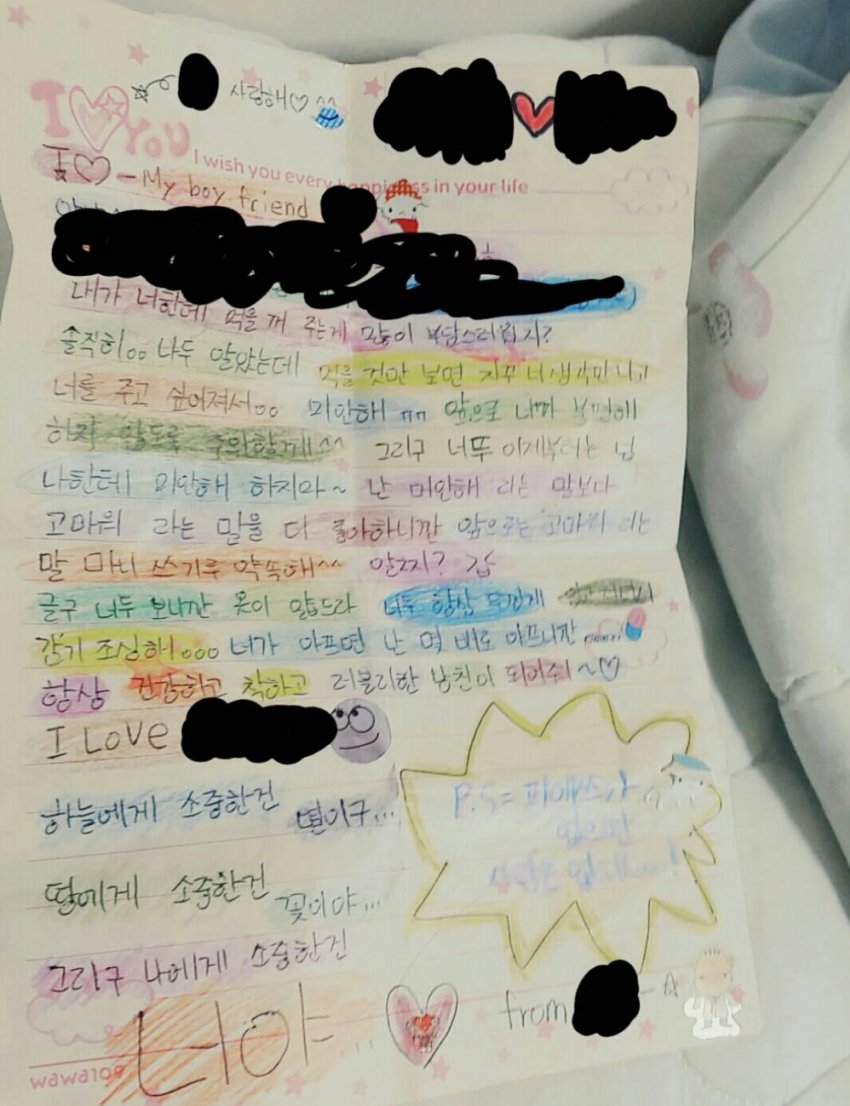 사랑해♡^^
I ♡ YOU
I wish you every happiness in your life
I♡-My boy friend
내가 너한테 먹을 꺼 주는게 많이 부담스러웠지?
솔직히oo 나두 알았는데 먹을 것만 보면 자꾸 너 생각만 나구
너를 주고 싶어져서oo 미안해 ㅠㅠ 앞으로 니가 불편해
하지 않도록 주의할께!^^ 그리구 너뚜 이제부터는
나한테 미안해 하지마~ 난 미안해 라는 말보다
고마워 라는 말을 더 좋아하니깐 앞으로는 고마워 라는
말 마니 쓰기루 약속해^^ 알찌?
글구 너두 보니깐 옷이 얇드라 너두 항상 두껍게
감기 조심해!ooo 너가 아프면 난 몇 배로 아프니깐
항상 건강하고 착하고 러블리한 남친이 되어줘~♡
I LOVE
하늘에게 소중한건 별이구...
P.S= 피에쓰가
없으면
사랑은 없대...!
떵에게 소중한건 꽃이야...
그리구 나에게 소중한건
너야...
from
wawa109